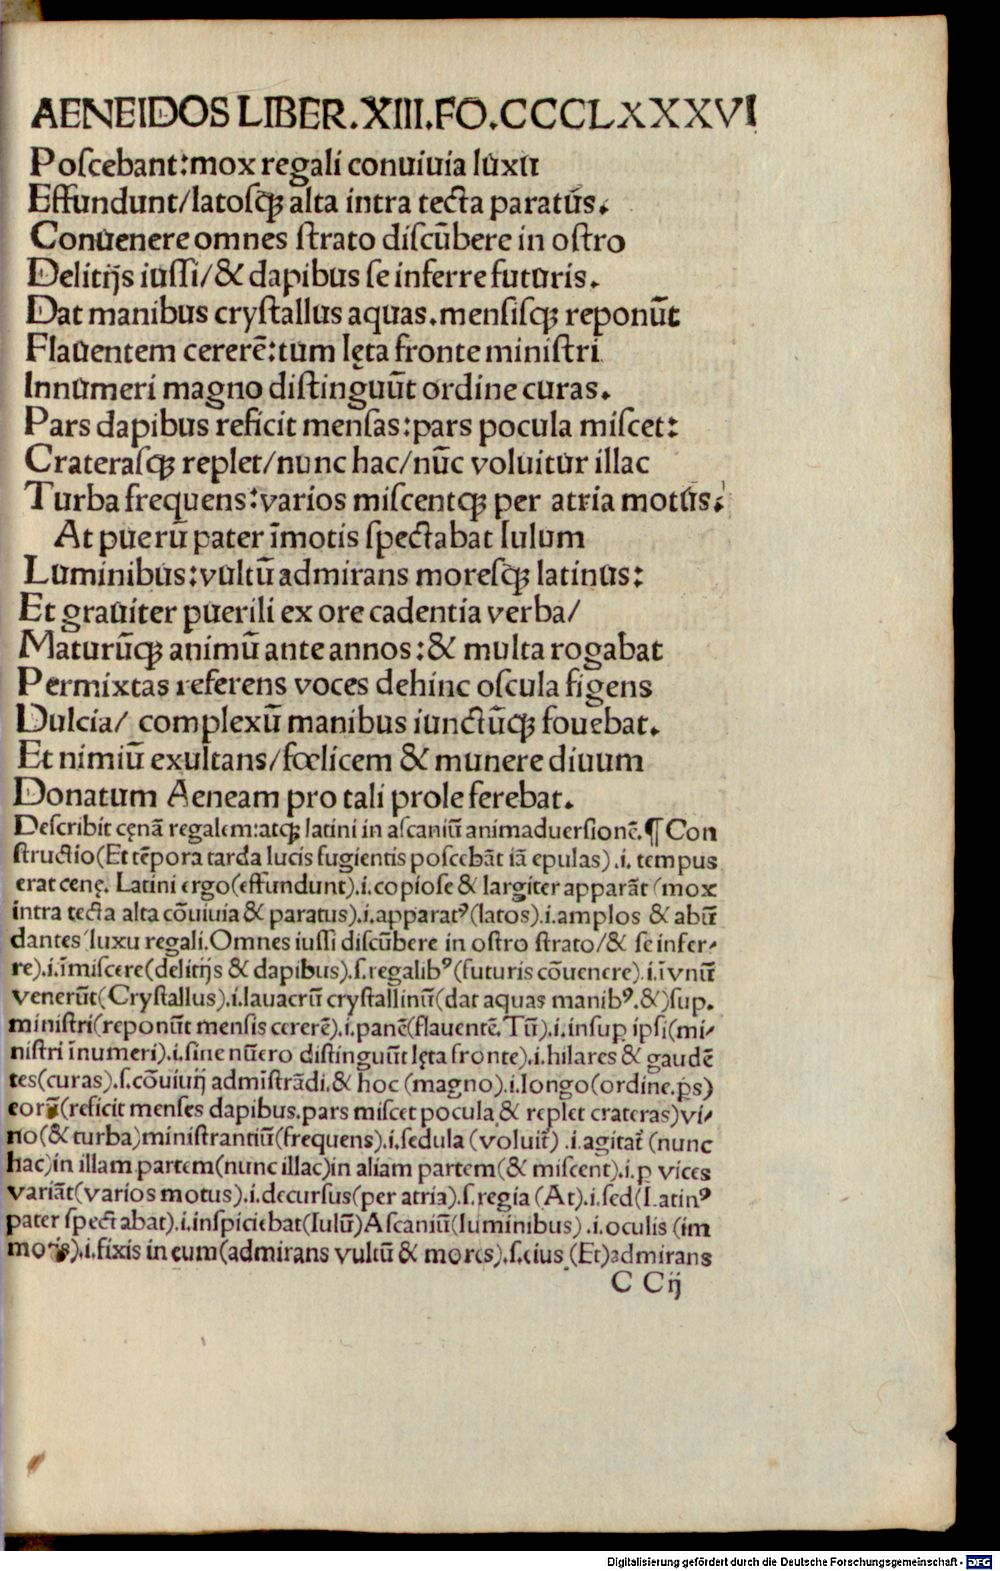 AENEIDOS LIBER.XIII.FO.CCCCLXXXVI
Poſcebant:mox regali conuiuia luxu
Effundunt/latoſqꝫ alta intra tecta paratūs.
Conuenere omnes ſtrato diſcūbere in oſtro
Delitijs iuſſi/& dapibus ſe inferre futuris.
Dat manibus cryſtallus aquas.menſiſqꝫ reponūt
Flauentem cererē:tum lęta fronte miniſtri
Innumeri magno diſtinguūt ordine curas.
Pars dapibus reficit menſas:pars pocula miſcet:
Crateraſqꝫ replet/nunc hac/nūc voluitur illac
Turba frequens:varios miſcentqꝫ per atria motus.
At puerū pater īmotis ſpectabat Iulum
Luminibus:vultū admirans moreſqꝫ latinus:
Et grauiter puerili ex ore cadentia verba/
Maturūqꝫ animū ante annos:& multa rogabat
Permixtas referens voces dehinc oſcula figens
Dulcia/ complexū manibus iunctūqꝫ fouebat.
Et nimiū exultans/fœlicem & munere diuum
Donatum Aeneam pro tali prole ferebat.
Deſcribit cęnā regalem:atqꝫ latini in aſcaniū animaduerſionē.¶Con
ſtructio(Et tēpora tarda lucis fugientis poſcebāt iā epulas).i. tempus
erat cenę. Latini ergo(effundunt).i.copioſe & largiter apparāt (mox
intra tecta alta cōuiuia & paratus).i.apparatꝰ(latos).i.amplos & abū
dantes luxu regali.Omnes iuſſi diſcūbere in oſtro ſtrato/& ſe infer-
re).i.īmiſcere(delitijs & dapibus).ſ.regalibꝰ(futuris cōuenere).i.ī vnū
venerūt(Cryſtallus).i.lauacrū cryſtallinū(dat aquas manibꝰ.&)ſup.
miniſtri(reponūt menſis cererē).i.panē(flauentē.Tū).i.inſuꝑ ipſi(mi-
niſtri īnumeri).i.ſine nūero diſtinguūt lęta fronte).i.hilares & gaudē
tes(curas).ſ.cōuiuij admīſtrādi.& hoc (magno).i.longo(ordine.ꝑs)
eorū(reficit menſes dapibus.pars miſcet pocula & replet crateras)vi-
no(& turba)miniſtrantiū(frequens).i.ſedula (voluit̄) .i.agitat̄ (nunc
hac)in illam partem(nunc illac)in aliam partem(& miſcent).i.ꝑ vices
variāt(varios motus).i.decurſus(per atria).ſ.regia (At).i.ſed(Latinꝰ
pater ſpectabat).i.inſpiciebat(Iulū)Aſcaniū(luminibus) .i.oculis (im
motis).i.fixis in eum(admirans vultū & mores).ſ.eius (Et)admirans
C Cij
Digitalisierung gefördert durch die Deutsche Forschungsgemeinschaft - DFG